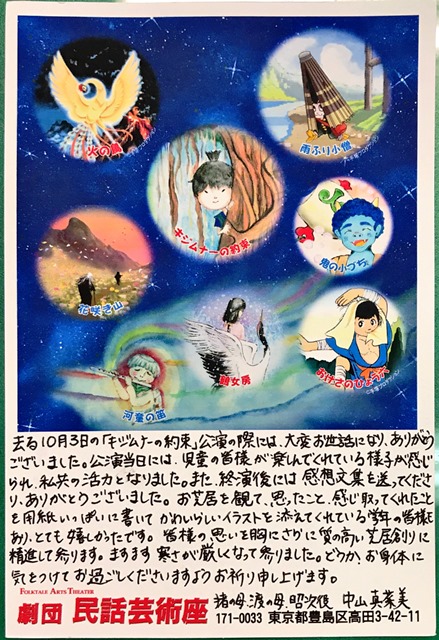 火の鳥
©手塚プロダクション
雨ふり小僧
©手塚プロダクション
キジムナーの約束
鬼の小づち
花咲き山
鶴女房
おけさのひょう六
©手塚プロダクション
河童の笛
去る10月3日の「キジムナーの約束」公演の際には、大変お世話になり、ありがとう
ございました。公演当日には、児童の皆様が楽しんでくれている様子が感じ
られ、私共の活力となりました。また、終演後には感想文集を送ってくださ
り、ありがとうございました。お芝居を観て、思ったこと、感じ取ってくれたこと
を用紙いっぱいに書いて かわいらしいイラストを添えてくれている学年の皆様も
おり、とても嬉しかったです。皆様の思いを胸にさらに質の高い芝居創りに
精進して参ります。ますます寒さが厳しくなって参りました。どうか、お身体に
気をつけてお過ごしくださいますようお祈り申し上げます。
FOLKTALE ARTS THEATER
劇団 民話芸術座
渚の母、渡の母、昭次役 中山真菜美
171-0033 東京都豊島区高田3-42-11